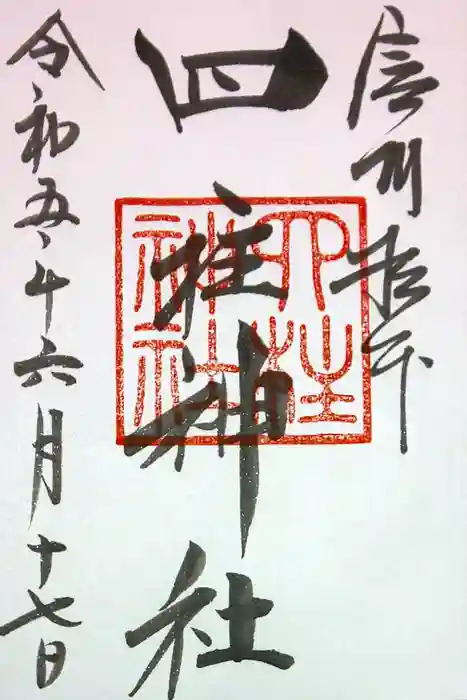 信州松本
四柱神社
四柱
神社
令和五年六月十七日